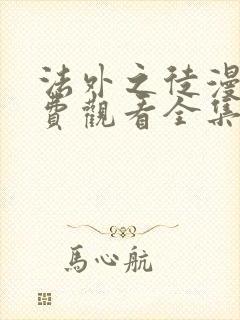 法外之徒漫
費觀看全集
馬心航